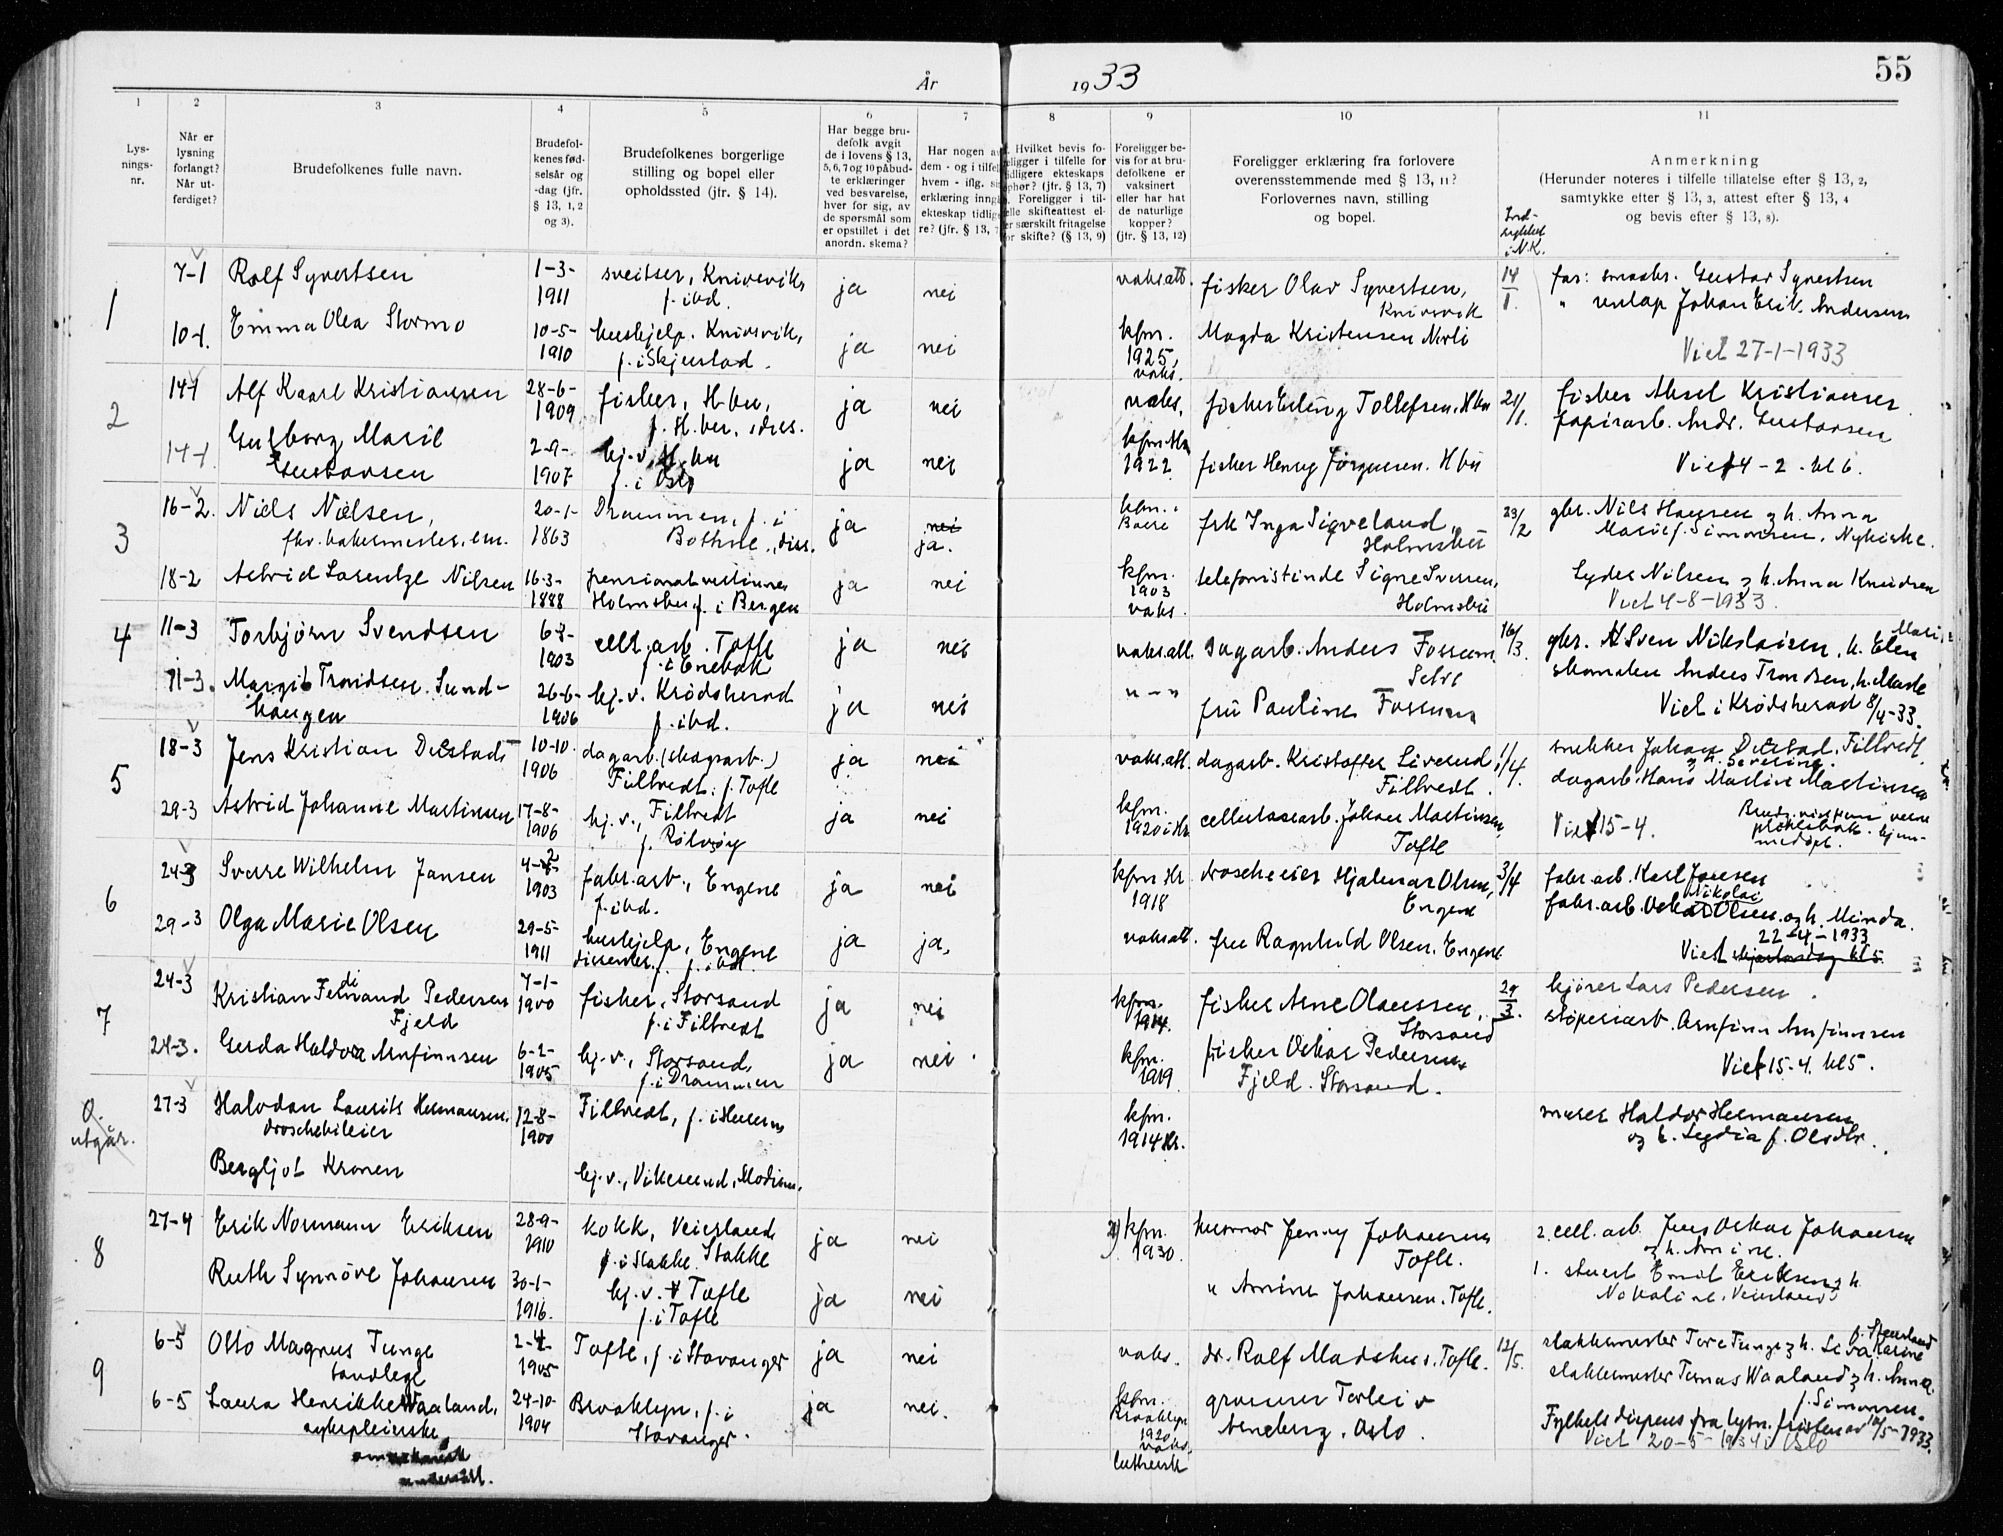 55
År 1933
1 2 3 4 5 6 7 8 9 10 11
Lysnings-
nr.
Når er
lysning
forlangt?
Når ut-
ferdiget?
Brudefolkenes fulle navn.
Brudefol-
kenes fød-
selsår og
-dag (jfr.
§ 13, 1, 2
og 3).
Brudefolkenes borgerlige
stilling og bopel eller
opholdssted (jfr. § 14).
Har begge bru-
defolk avgit
de i lovens § 13,
5, 6, 7 og 10 påbud-
te erklæringer
ved besvarelse,
hver for sig, av
de spørsmål som
er opstillet i det
anordn. skema?
Har nogen av
dem - og i tilfel
hvem - iflg. si
erklæring inng
ekteskap tidlig
re? (jfr. § 13, 7
Hvilket bevis fo-
eligger i tilfelle for
idligere ekteskaps
phør? (jfr. § 13, 7)
Foreligger i til-
elle skifteattest el-
er særskilt fritagelse
or skifte? (§ 13, 9)
Foreligger be-
vis for at bru-
defolkene er
vaksinert
eller har hat
de naturlige
kopper?
(jfr. § 13, 12)
Foreligger erklæring fra forlovere
overensstemmende med § 13, 11?
Forlovernes navn, stilling
og bopel.
Anmerkning
(Herunder noteres i tilfelle tillatelse efter § 13, 2,
samtykke efter § 13, 3, attest efter § 13, 4
og bevis efter § 13, 8).
i N.K.
1
7-1 Rolf Syvertsen 1-3-1911 sveitser, Knivsvik, f. ibd. ja nei vaks.att. fisker Olav Syvertsen, Knivsvik 14/1. far: smaabr. Gustav Syvertsen
10-1. Emma Olea Stormo 10-5-1910 hushjelp. Knivsvik, f. i Skjerstad. ja nei kfm. 1925, vaks. Magda Kristensen Nerli " Johan Erik Andersen
Viet 27-1-1933
2
14-1 Alf Kaarl Kristiansen 28-6-1909 fisker, H-bu, f. H.bu, diss. ja nei vaks. fisker Erling Tollefsen, Hbu 21/1. fisker Aksel Kristiansen
14-1 Gulborg Marie Gustavsen 2-9-1907 hj.v. H.bu f. i Oslo ja nei kfm. 1922 fisker Henry Jørgensen. Hbu papirarb. Andr. Gustavsen
Viet 4-2. kl 6.
3
16-2. Niels Nielsen, fhv. bakermester, em. 20-1-1863 Drammen, f. i Bothne, diss. ja nei ja. kfm. i frk Inga Sigveland, Holmsbu 23/2 gbr. Nils Hansen og h. Anna Marie f. Simonsen, Nykirke.
18-2 Astrid Lorentze Nilsen 16-3-1888 pensionatvertinne, Holmsbu f. i Bergen ja nei kfm. 1903 vaks. telefonistinde Signe Iversen, Holmsbu Nilsen og h. Anna Knudsen
Viet 4-8-1933.
4
11-3 Torbjørn Svendsen 1903 cell.arb. Tofte f. i Enebak ja nei vaks.att. dagarb. Anders Fossum. 16/3. gbr. Sven Nikolaisen, h. Elen Mari
11-3. Margit Trondsen Sundhaugen 26-6-1906 hj.v. Krødsherad f. ibd. ja nei " - " fru Pauline Fossum skomaker Anders Trondsen, h. Marte
Viet i Krødsherad 8/4-33.
5
18-3 Jens Kristian Delstad 10-10-1906 dagarb. (skogsarb.) Filtvedt. f. Tofte ja nei vaks.att. dagarb. Kristoffer Liverud Filtvedt. 1/4. snekker Johan Delstad, Filtvedt og h. Severine.
29-3 Astrid Johanne Martinsen 17-8-1906 hj.v., Filtvedt f. Rølvsøy ja nei kfm. 1920 i Hr. cellulosearb. Johan Martinsen, Tofte dagarb. Hans Martin Martinsen
Viet 15-4.
6
24-3 Sverre Wilhelm Jansen 1903 fabr.arb., Engene f. ibd. ja nei kfm Hr 1918 droscheeier Hjalmar Olsen, Engene 3/4 fabr.arb. Karl Jansen
29-3 Olga Marie Olsen 29-5-1911 hushjelp, Engene dissenter. f. ibd. ja ja, vaksatt. fru Ragnhild Olsen, Engene fabr.arb. Oskar Nikolai Olsen og h. Minda.
22-4-1933
Viet
7
24-3 Kristian Ferdinand Pedersen Fjeld 7-1-1900 fisker, Storsand f. i Filtvedt ja nei kfm. 1914. fisker Arne Olaussen, Storsand 29/3. kjører Lars Pedersen.
24-3. Gerda Haldora Arnfinnsen 6-2-1905 hj.v., Storsand, f. i Drammen ja nei. kfm. 1919. fisker Oskar Pedersen Fjeld. Storsand. støperiarb. Arnfinn Arnfinnsen
Viet 15-4. kl 5.
0. utgår.
27-3 Halvdan Laurits Hermansen, droschebileier 12-8-1900 Filtvedt, f. i Hurum kfm. 1914 Hr. murer Haldor Hermansen og h. Lydia f. Olsdtr.
Bergljot Kronen hj.v., Vikesund, Modum.
8
27-4 Erik Normann Eriksen 28-9-1910 kokk, Veierland, Stokke f. i Stokke. ja nei kfm. 1930. husmor Jenny Johansen Tofte. 2. cell.arb. Jens Oskar Johansen og h. Amine.
Ruth Synnøve Johansen 30-1-1916. hj.v. Tofte f. i Tofte ja nei " Amine Johansen. Tofte. 1. stuert Emil Eriksen og h. Nokoline, Veierland
9
6-5 Otto Magnus Tunge tandlege 2-4-1905 Tofte, f. i Stavanger ja nei vaks. dr. Rolf Madshus. Tofte. 12/5. slaktermester Tore Tunge og h. Lea Karine
6-5 Laura Henrikke Waaland, sykepleierske, 24-10-1904 Brooklyn, f. i Stavanger. ja nei. kfm. Brooklyn 1920 vaks. luthersk Arneberg, Oslo. slaktermester Waaland og h. Anna f. Simonsen.
Viet 20-5-1934 i Oslo